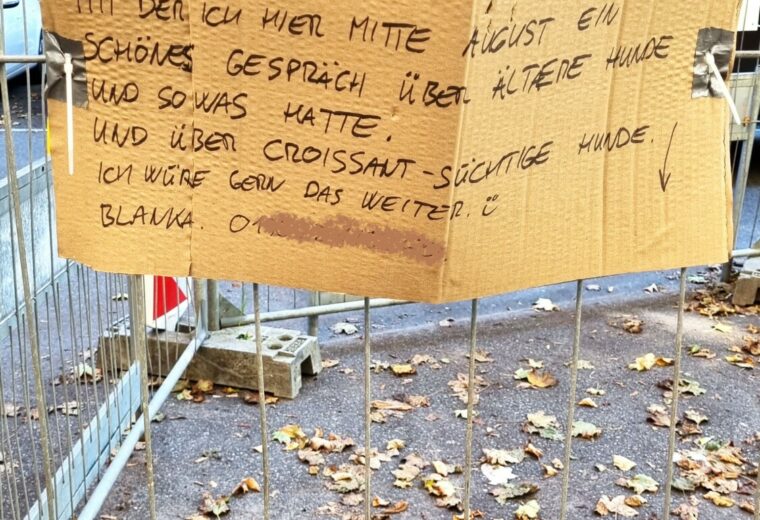 MIT DER ICH HIER MITTE AUGUST EIN
SCHÖNES GESPRÄCH ÜBER ÄLTERE HUNDE
UND SOWAS HATTE.
UND ÜBER CROISSANT-SÜCHTIGE HUNDE.
ICH WÜRE GERN DAS WEITER. Ü
BLANKA. 01